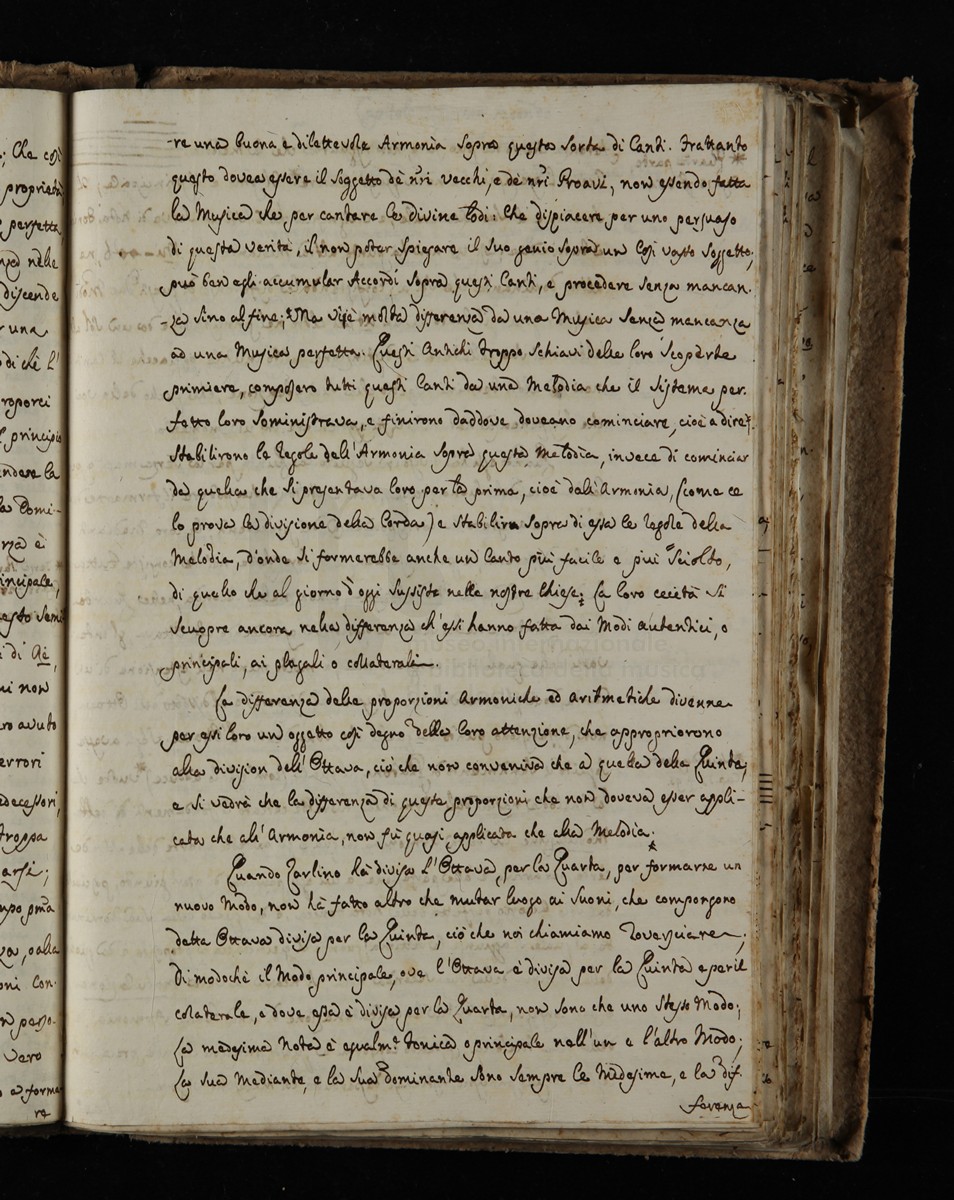 -re una buona e dilettevole Armonia sopra questa sorta di Canti. Frattanto
questo dovea essere il Soggetto dè nri vecchi, e dè nri Proavi, non essendo fatta
la Musica che per cantare le divine lodi: Che dispiacere per uno persuaso
di questa verità, il non poter spiegare il suo genio sopra un così vasto soggetto;
può ben egli accumular Accordi sopra questi Canti, e procedere senza mancan-
-za sino al fine; Ma vi è molta differenza da una Musica senza mancanza
ad una Musica perfetta. Questi Antichi troppo schiavi delle loro scoperte
primiere, composero tutti questi Canti da una Melodia che il sistema per-
fetto loro somministrava, e finirono daddove doveano cominciare, cioè a dire:
Stabilirono le Regole dell'Armonia sopra questa Melodia, invece di cominciar
da quella che si presentava loro per la prima, cioè dall'Armonia, (come ce
lo prova la divisione della Corda) e stabilire sopra di essa le regole della
Melodia, d'onde si formerebbe anche un Canto più facile e più sciolto,
di quello che al giorno d'oggi sussiste nelle nostre Chiese; La loro cecità si
scuopre ancora nella differenza ch'essi hanno fatta dai Modi autentici, o
principali, ai plagali o collaterali.
La differenza delle proporzioni Armoniche ed aritmetiche divenne
per essi loro un oggetto così degno della loro attenzione, che appropriorono
alla division dell'Ottava, ciò che non conveniva che a quella della Quinta;
e si vedrà che la differenza di queste proporzioni che non doveva esser appli-
cata che all'Armonia, non fù quasi applicata che alla Melodia.
Quando Zarlino hà divisa l'Ottava per la Quarta, per formarne un
nuovo Modo, non hà fatto altro che mutar luogo ai suoni, che compongono
detta Ottava divisa per la Quinta, ciò che noi chiamiamo Rovesciare;
Di modochè il Modo principale, ove l'Ottava è divisa per la Quinta e per il
colaterale, e dove essa è divisa per la Quarta, non sono che uno stesso Modo;
La medesima Nota è egualmte tonica o principale nell'un e l'altro Modo;
La sua Mediante, e la sua Dominante sono sempre le Medesime, e la dif-
ferenza